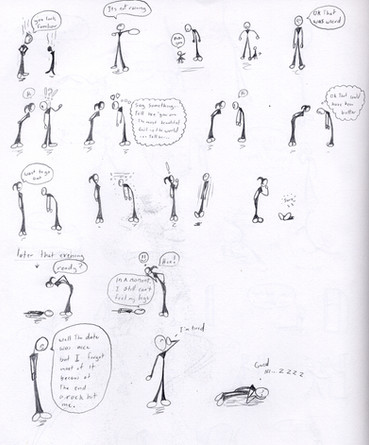 you look familiar
It's not raining
are you
OK that was weird
Hi
!?!
Say something...
tell her you are
the most beautiful
girl in the world
Hi
OK that could have been better
want to go out
later that evening
ready?
in a moment
I still can't
feel my legs
!!
Well the date
was nice
but I forgot
most of it
because at
the end
me.
I'm tired
Good
Ni..zzzz